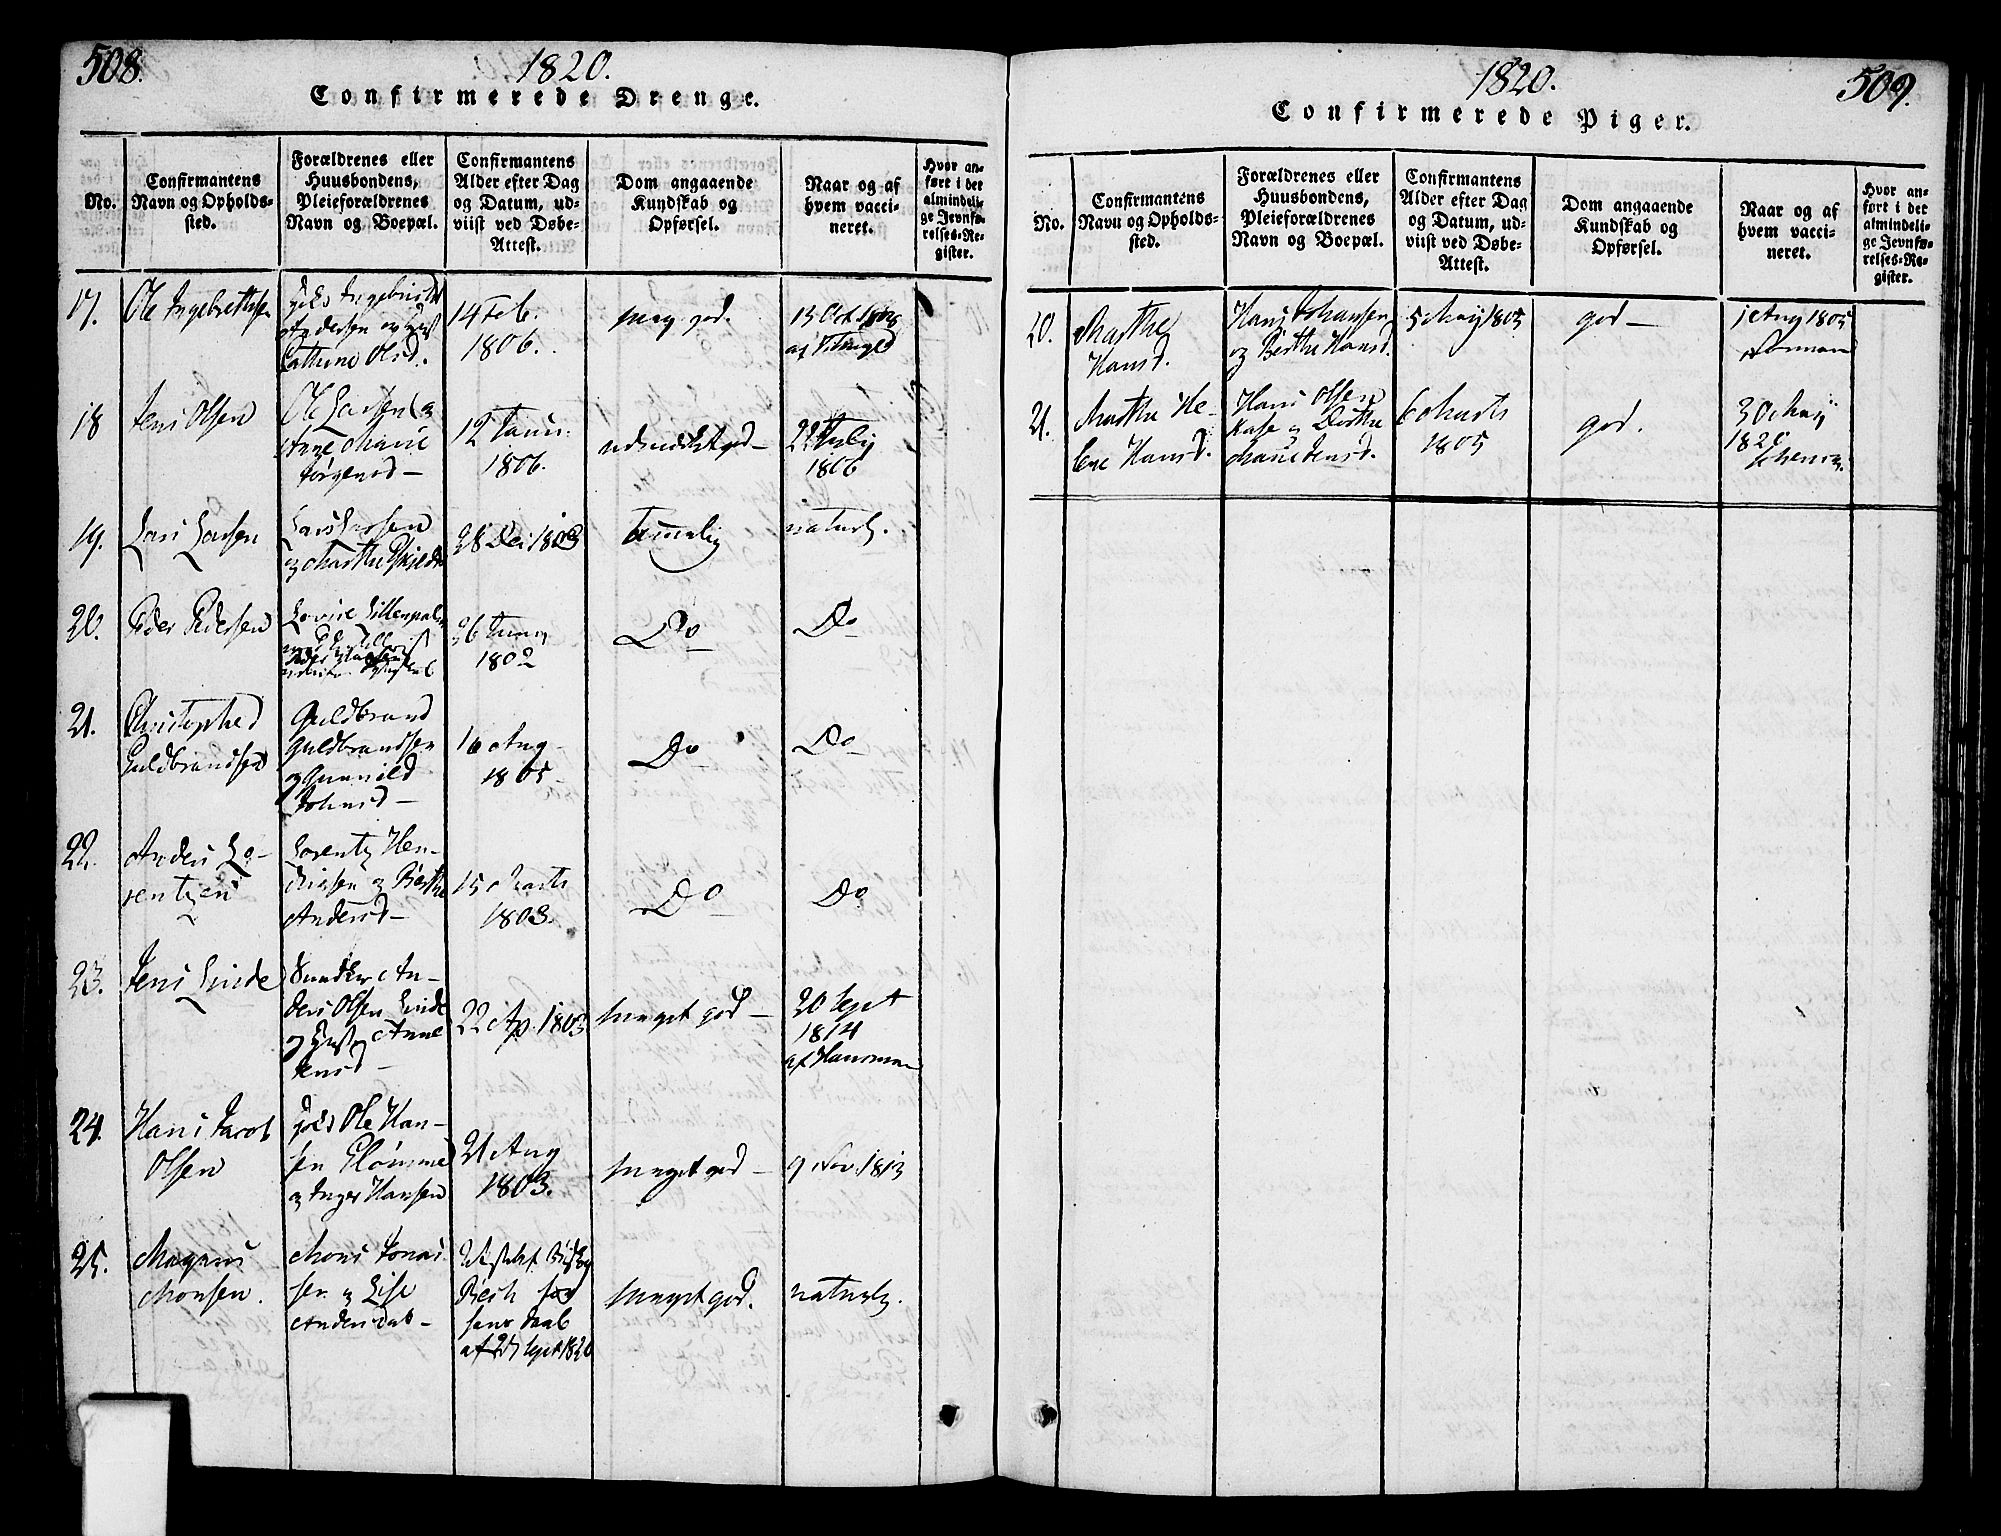 508.
1820.
Confirmerede Drenge.
No.
Confirmantens
Navn og Opholds-
sted.
Forældrenes eller
Huusbondens,
Pleieforældrenes
Navn og Boepæl.
Confirmantens
Alder efter Dag
og Datum, ud-
viist ved Døbe-
Attest.
Dom angaaende
Kundskab og
Opførsel.
Naar og af
hvem vacci-
neret.
Hvor an-
ført i det
almindeli-
ge Jevnfø-
relses-Re-
gister.
17.
Ole Ingebrethsen
Andersen
Cathrine Olsd.
14 Feb.
1806.
meg god.
13 Oct.
af
18
Jens Olsen
Ole Larsen og
Anne Marie
Jørgensd -
12 Janu.
1806.
udmerket god -
22 July
1806
19.
Lars Larsen
Lars Larsen
og Marthe
28 Dec 1803
temmelig
naturlig.
20.
Peder Pedersen
26
1802
Do
Do
21.
Christopher
Guldbrandsen
Guldbrand
Guldbrandsen
og Gunnild
Johnsd -
16 Aug
1805
Do
Do
22.
Anders Lo-
rentzen
Lorentz Hen-
richsen og Berthe
Andersd -
15 Marts
1803.
Do
Do
23.
Jens Linde
An-
ders Olsen Linde
og Anne
Jensd -
22 Ap. 1803
meget god -
20 Sept
1814
af
24.
Hans Jacob
Olsen
Ole Han-
sen
og Inger Hansen
21 Aug
1803.
meget god -
9 Nov. 1813
25.
Magnus
Monsen.
Mons Jonas-
sen og Lise
Andersdat -
Daab
af 25 Sept 1820
meget god.
naturlig.
1820.
509.
Confirmerede Piger.
No.
Confirmantens
Navn og Opholds-
sted.
Forældrenes eller
Huusbondens,
Pleieforældrenes
Navn og Boepæl.
Confirmantens
Alder efter Dag
og Datum, ud-
viist ved Døbe-
Attest.
Dom angaaende
Kundskab og
Opførsel.
Naar og af
hvem vacci-
neret.
Hvor an-
ført i det
almindeli-
ge Jevnfø-
relses-Re-
gister.
20.
Marthe
Hansd.
Hans Johansen
og Berthe Hansd.
5 May 1805
god -
1 Aug 1805
21.
Marthe He-
lene Hansd.
Hans Olsen
og Dorthe
Marie Jensd.
6 Marts
1805
god.
30 May
1820